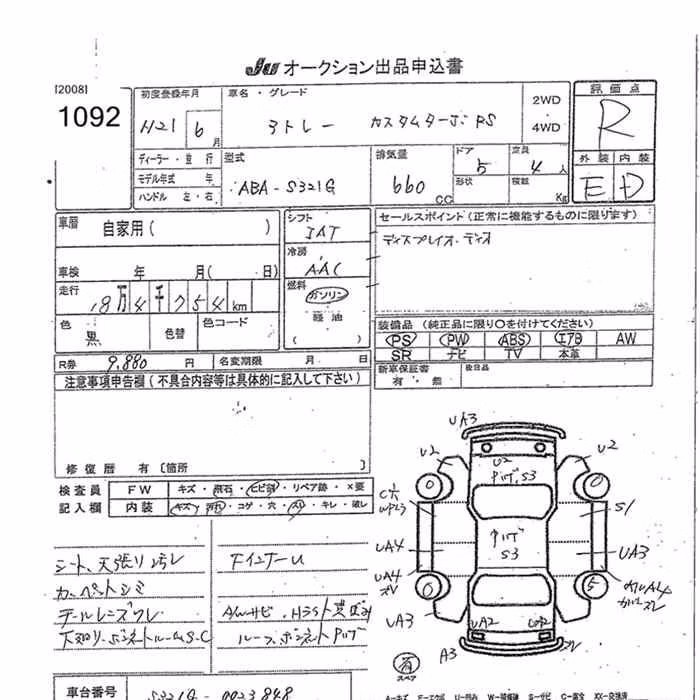 Ju オークション出品申込書
[2008]
1092
初度登録年月
H21 6月
車名・グレード
アトレー カスタムターボ RS
2WD
・
4WD
評価点
R
ディーラー・並行
モデル年式 年
ハンドル 左・右
型式
ABA-S321G
排気量
660 CC
ドア
5
形状
定員
4人
積載 Kg
外装 内装
E D
車歴 自家用( )
車検 年 月( 日)
走行
18万4千754km
色
黒
色替
色コード
シフト
IAT
冷房
AAC
燃料
ガソリン
・
軽油
( )
セールスポイント(正常に機能するものに限ります)
ディスプレイオーディオ
装備品 (純正品に限り○を付けてください)
PS PW ABS エアB AW
SR ナビ TV 本革
新車保証書
有・無
後日品
R券 9,880 円 名変期限 月 日
注意事項申告欄(不具合内容等は具体的に記入して下さい)
修復歴 有〔箇所 〕
検査員
記入欄
FW キズ・飛石・ヒビ割・リペア跡・×要
内装 キズ・汚れ・コゲ・穴・スリ・キレ・破レ
シート、天張リ汚レ
カーペットシミ
テールレンズワレ
下廻リ・ボンネットルームS.C
FインナーU
AWサビ
ルーフ、ボンネットクリハゲ
UA3
U2
U2
U2
S3
S3
0
0
0
5
S1
UA4
UA3
UA4
UA3
UA2
A3
有
スペア
車台番号 S321G-0023848